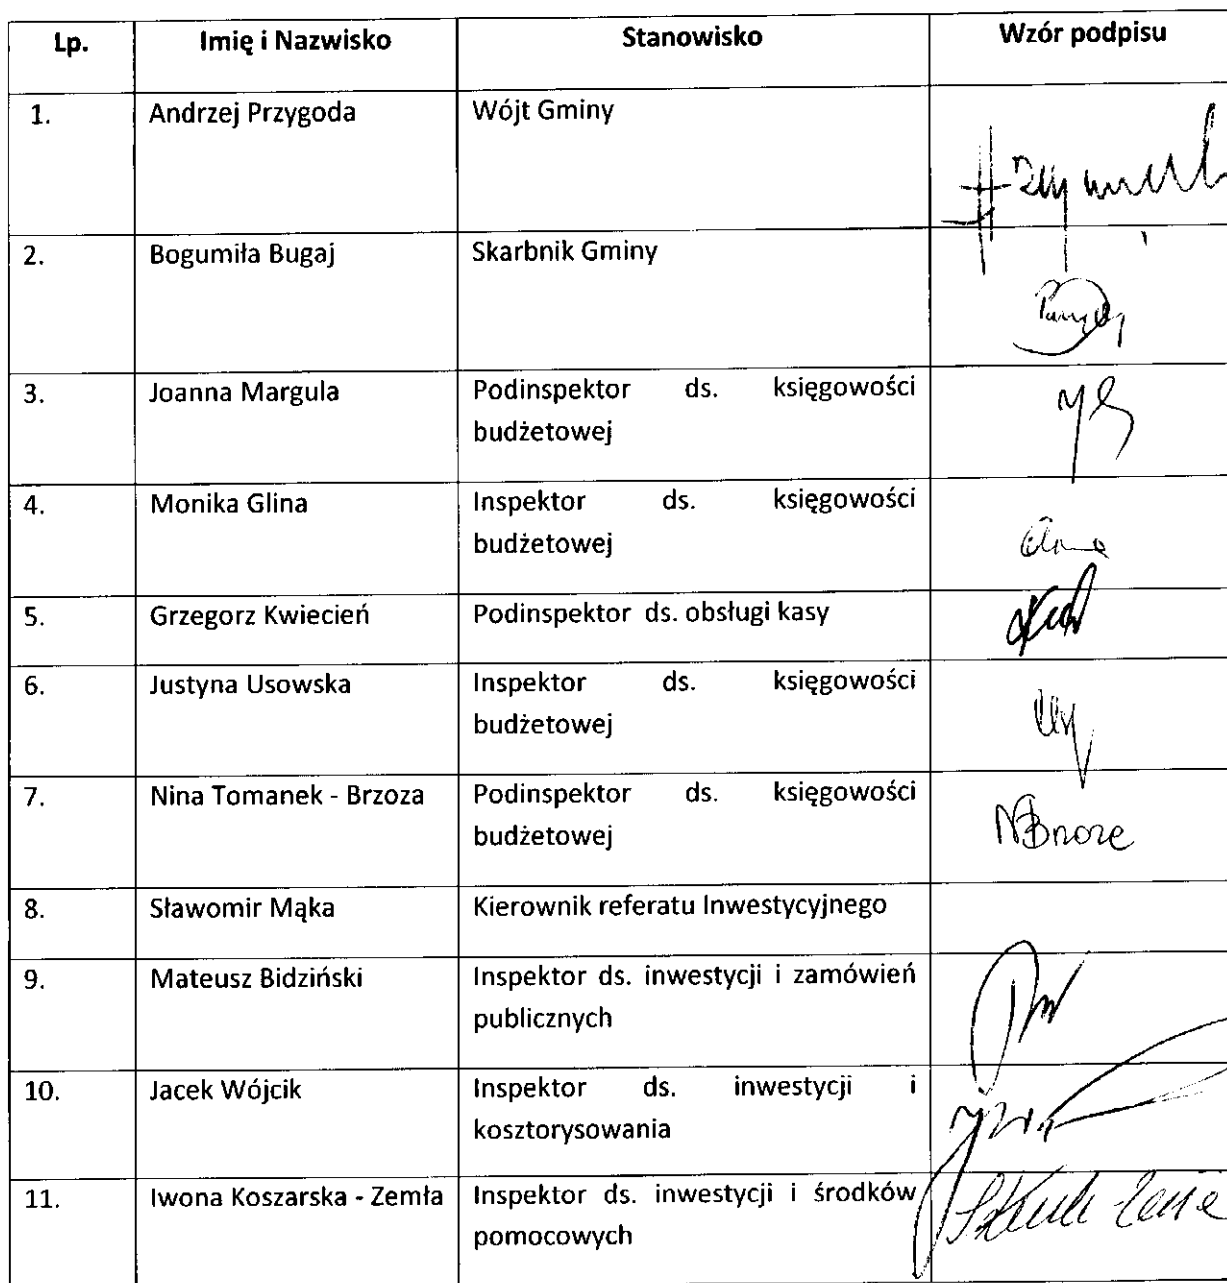 Lp. Imię i Nazwisko Stanowisko Wzór podpisu
1. Andrzej Przygoda Wójt Gminy
2. Bogumiła Bugaj Skarbnik Gminy
3. Joanna Margula Podinspektor ds. księgowości
budżetowej
4. Monika Glina Inspektor ds. księgowości
budżetowej
5. Grzegorz Kwiecień Podinspektor ds. obsługi kasy
6. Justyna Usowska Inspektor ds. księgowości
budżetowej
7. Nina Tomanek - Brzoza Podinspektor ds. księgowości
budżetowej
8. Sławomir Mąka Kierownik referatu Inwestycyjnego
9. Mateusz Bidziński Inspektor ds. inwestycji i zamówień
publicznych
10. Jacek Wójcik Inspektor ds. inwestycji i
kosztorysowania
11. Iwona Koszarska - Zemła Inspektor ds. inwestycji i środków
pomocowych